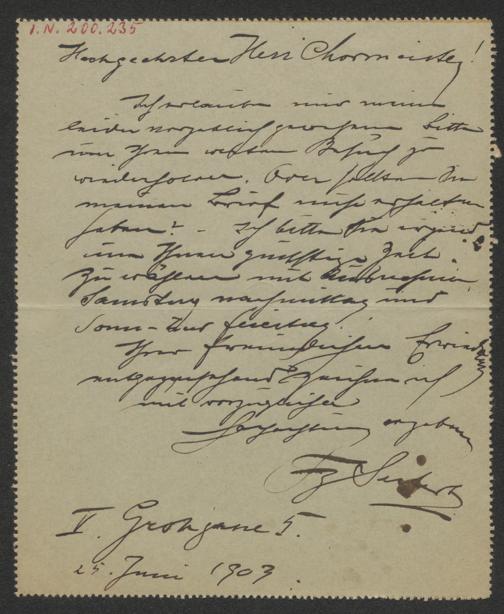 I.N. 200.235
Hochgeehrter Herr Chormeister!
Ich erlaube mir meine
leider vergeblich gewesene Bitte
um Ihren werten Besuch zu
wiederholen. Oder sollten Sie
meinen Brief nicht erhalten
haben? - Ich bitte Sie irgend
eine Ihnen günstige Zeit
zu wählen mit Ausnahme
Samstag nachmittag und
Sonn- und Feiertag.
Ihrer freundlichen
entgegensehend zeichne ich
mit vorzüglicher
Hochachtung ergebenst
Fz Seifert
V. Grohgasse 5.
25. Juni 1903.